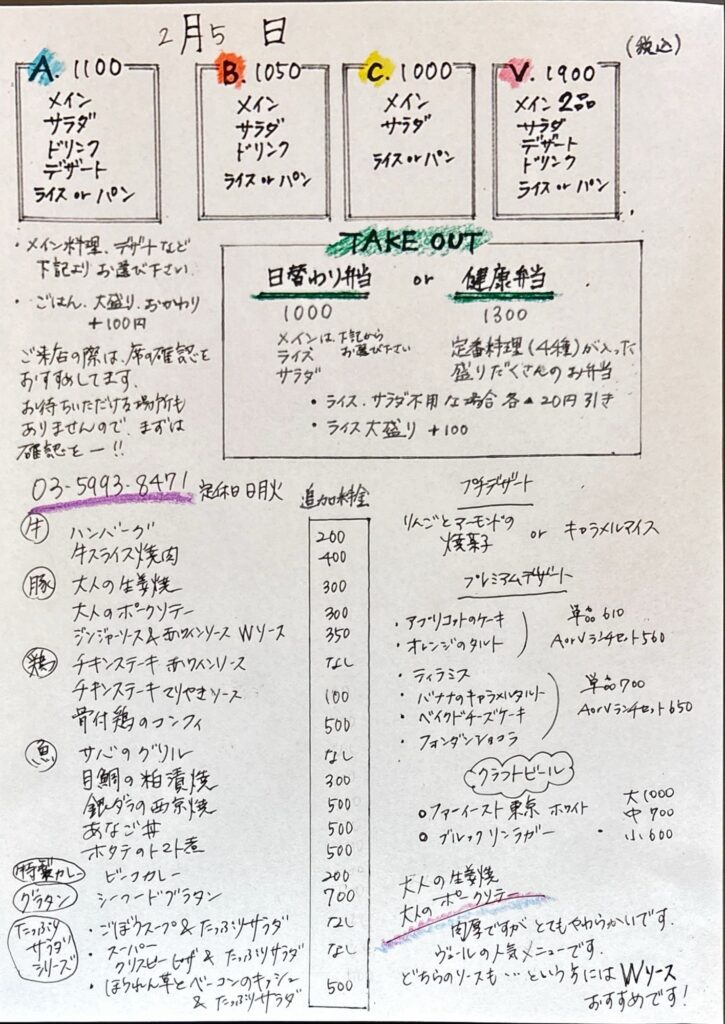 2月5日
(税込)
A. 1100
メイン
サラダ
ドリンク
デザート
ライス or パン
B. 1050
メイン
サラダ
ドリンク
ライス or パン
C. 1000
メイン
サラダ
ライス or パン
V. 1900
メイン 2品
サラダ
デザート
ドリンク
ライス or パン
・メイン料理、デザートなど
下記より お選び下さい
・ごはん、大盛り、おかわり
+100円
ご来店の際は、席の確認を
おすすめしてます。
お待ちいただける場所も
ありませんので、まずは
確認を ー!!
TAKE OUT
日替わり弁当 or 健康弁当
1000
メインは、下記から
お選び下さい
ライス
サラダ
1300
定番料理(4種)が入った
盛りだくさんのお弁当
・ライス、サラダ不用な場合 各▲20円引き
・ライス大盛り +100
03-5993-8471 定休日 日月火
追加料金
牛 ハンバーグ 200
牛スライス焼肉 400
豚 大人の生姜焼 300
大人のポークソテー 300
ジンジャーソース&赤ワインソース Wソース 350
鶏 チキンステーキ 赤ワインソース なし
チキンステーキ てりやきソース 100
骨付鶏のコンフィ 500
魚 サバのグリル なし
目鯛の粕漬焼 300
銀ダラの西京焼 500
あなご丼 500
ホタテのトマト煮 500
特製カレー ビーフカレー 200
グラタン シーフードグラタン 700
たっぷりサラダシリーズ
・ごぼうスープ & たっぷりサラダ なし
・スーパークリスピーピザ & たっぷりサラダ なし
・ほうれん草とベーコンのキッシュ
& たっぷりサラダ 500
プチデザート
りんごとアーモンドの
焼菓子 or キャラメルアイス
プレミアムデザート
・アプリコットのケーキ
・オレンジのタルト
単品 610
AorVランチセット560
・ティラミス
・バナナのキャラメルタルト
・ベイクドチーズケーキ
・フォンダンショコラ
単品700
AorVランチセット650
クラフトビール
○ファーイースト東京 ホワイト
○ブルックリンラガー
大1000
中700
・小600
大人の生姜焼
大人のポークソテー
肉厚ですが とてもやわらかいです。
ヴェールの人気メニューです。
どちらのソースも… という方には Wソース
おすすめです!